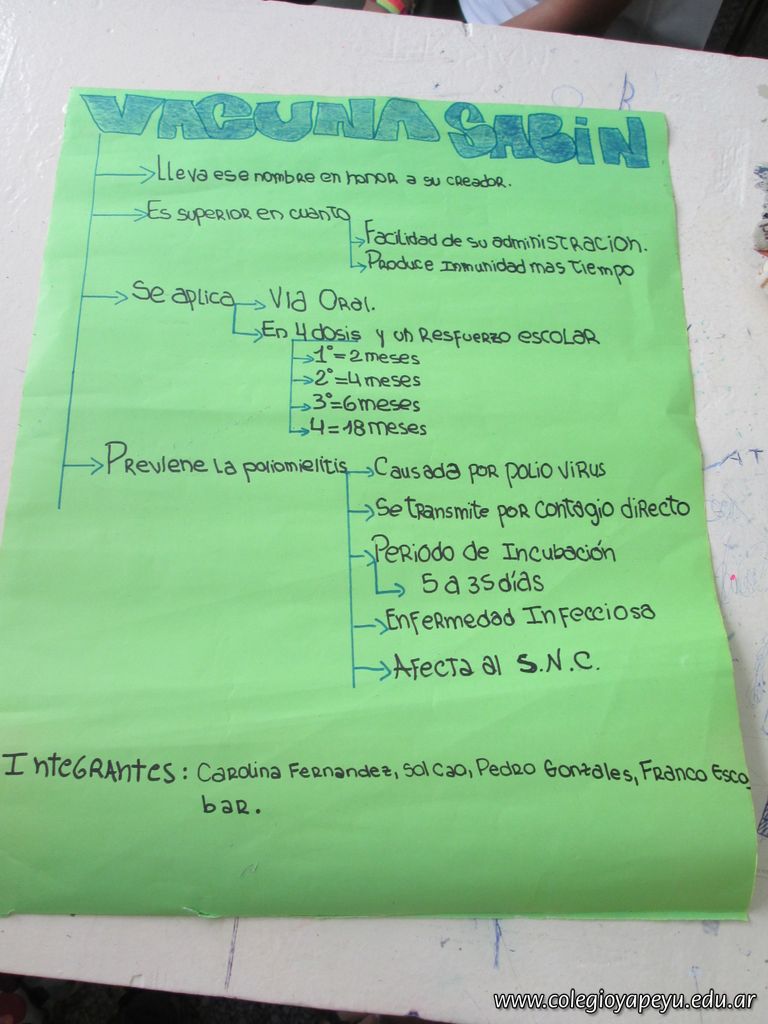 VACUNA SABIN
Lleva ese nombre en honor a su creador.
Es superior en cuanto
Facilidad de su administracion.
Produce Inmunidad mas tiempo
Se aplica Via Oral.
En 4 dosis y un Resfuerzo escolar
1°=2 meses
2°=4 meses
3°=6 meses
4=18 meses
Previene la poliomielitis Causada por polio virus
Se transmite por contagio directo
Periodo de Incubación
5 a 35 días
Enfermedad Infecciosa
Afecta al S.N.C.
Integrantes: Carolina Fernandez, Sol Cao, Pedro Gonzales, Franco Esco
bar.
www.colegioyapeyu.edu.ar